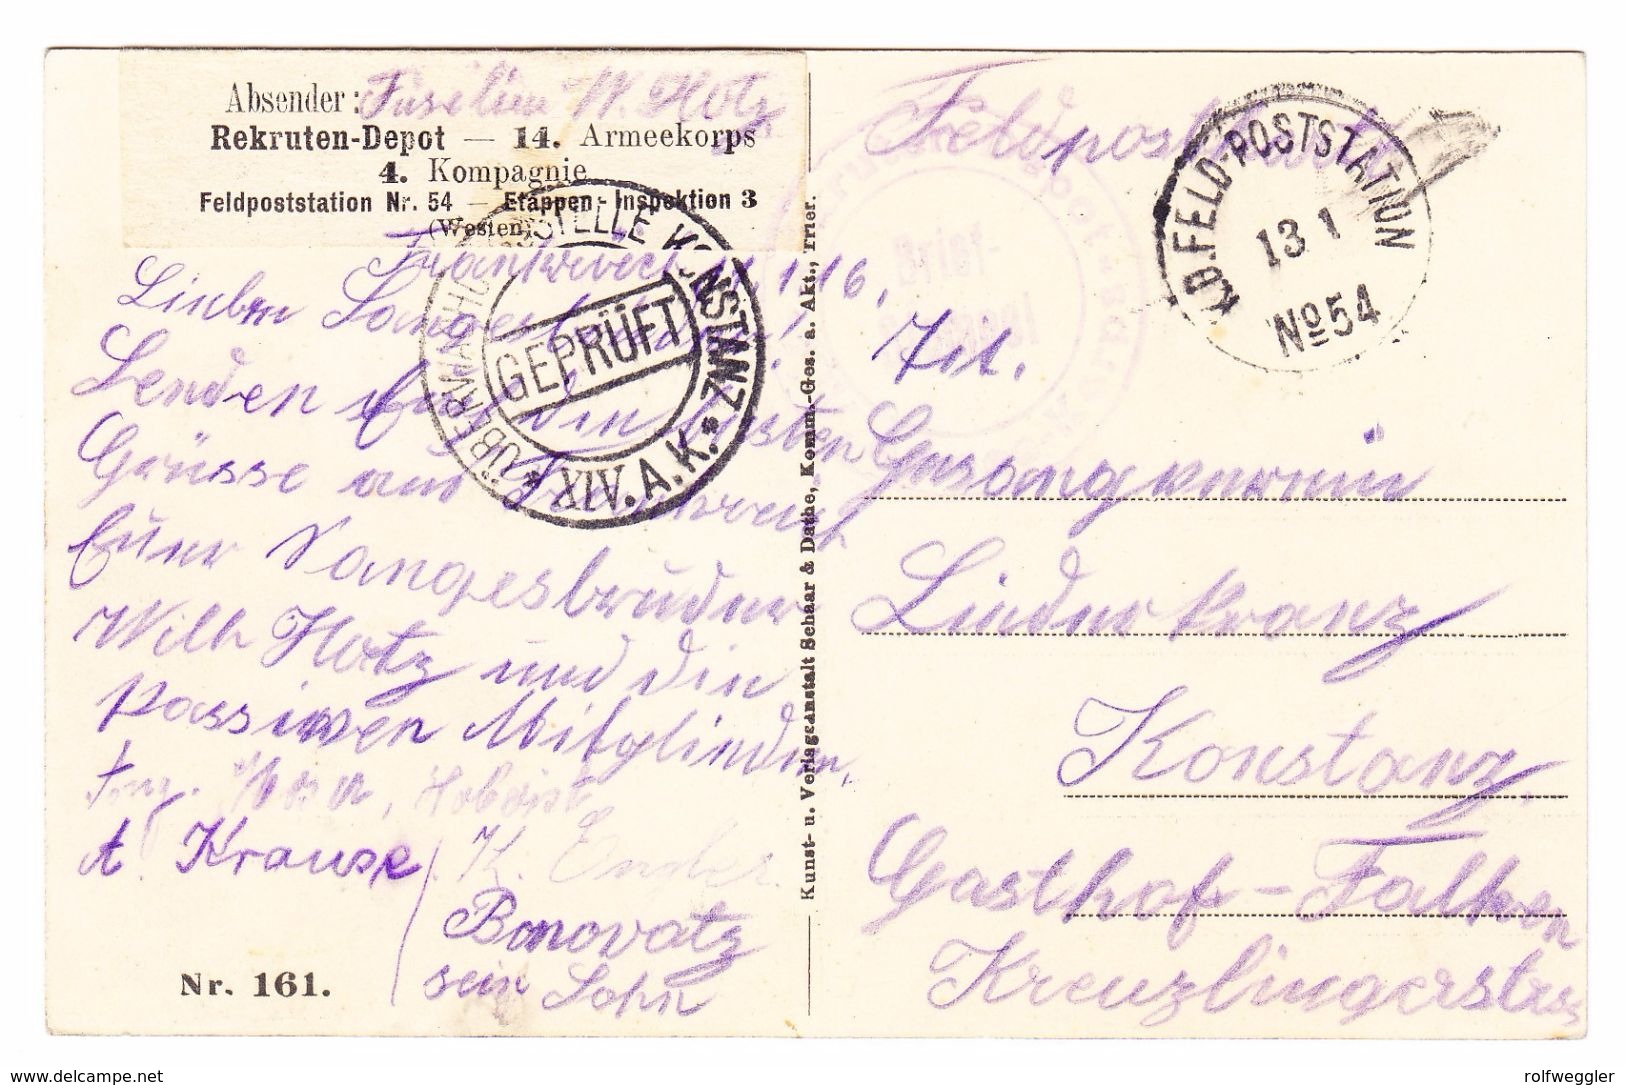 Absender: Füselier W. Hotz
Rekruten-Depot — 14. Armeekorps
4. Kompagnie
Feldpoststation Nr. 54 — Etappen-Inspektion 3
(Westen)
Frankreich 11.1.16.
Senden Euch die besten
Grüsse aus Frankreich
Euer Sangesbruder
Wilh Hotz und die
passiven Mitglieder,
A. Krause
K. Ender
Bonovatz
sein Sohn
Nr. 161.
ÜBERWACHUNGSSTELLE KONSTANZ
GEPRÜFT
* XIV. A. K. *
Kunst- u. Verlagsanstalt Schaar & Dathe, Komm.-Ges. a. Akt., Trier.
Feldpostkarte
K.D. FELD-POSTSTATION
13 1
No 54
Tit.
Gesangverein
Liederkranz
Konstanz.
Gasthof - Falken
Kreuzlingerstrasse
www.delcampe.net
rolfweggler